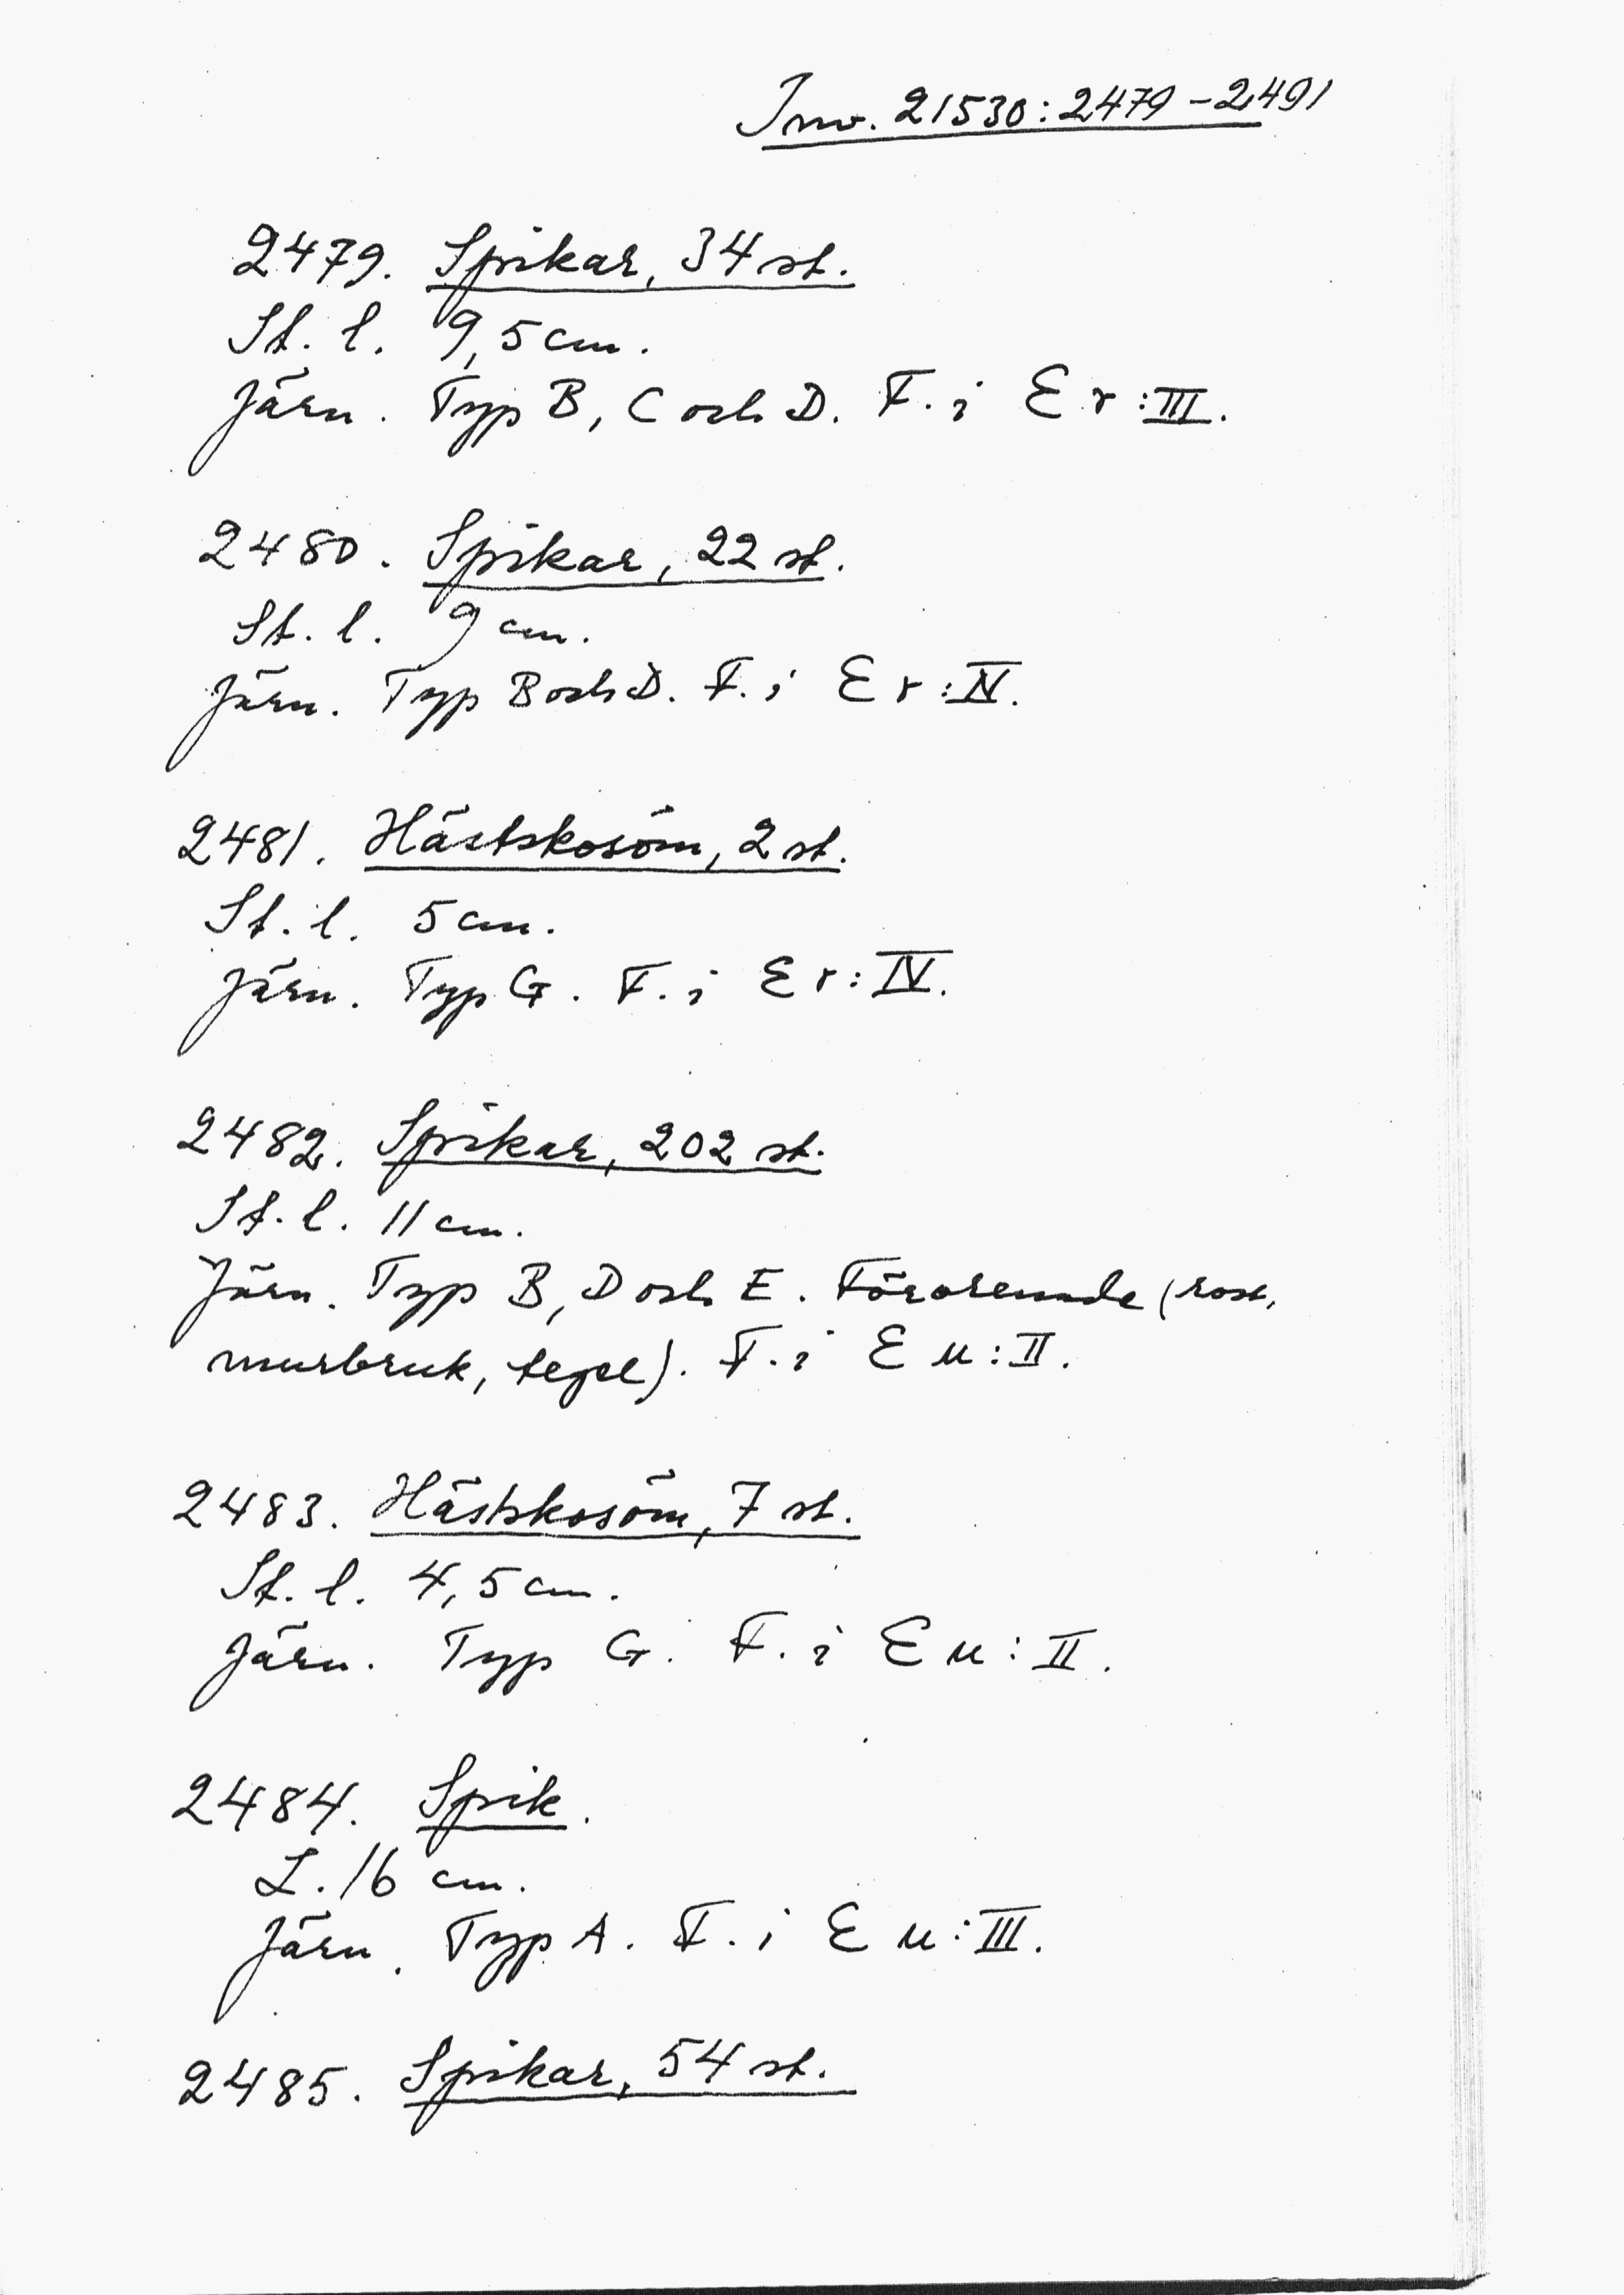 Inv. 21530:2479-2491
2479. Spikar, 34 st.
St. l. 9,5 cm.
Järn. Typ B, C och D. F. i E r:III.
2480. Spikar, 22 st.
St. l. 9 cm.
Järn. Typ B och D. F. i E r:IV.
2481. Hästskosöm, 2 st.
St. l. 5 cm.
Järn. Typ G. F. i E r:IV.
2482. Spikar, 202 st.
St. l. 11 cm.
Järn. Typ B, D och E. Förorenade (rost,
murbruk, tegel). F. i E u:II.
2483. Hästskosöm, 7 st.
St. l. 4,5 cm.
Järn. Typ G. F. i E u:II.
2484. Spik.
L. 16 cm.
Järn. Typ A. F. i E u:III.
2485. Spikar, 54 st.